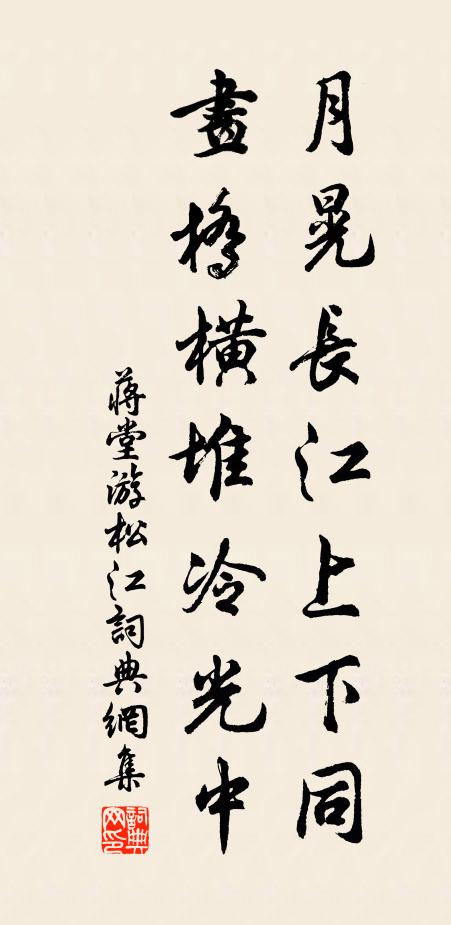 月晃長江上下同
畫橋橫堆冷光中
蔣堂游松江詞典網集
詞典网印